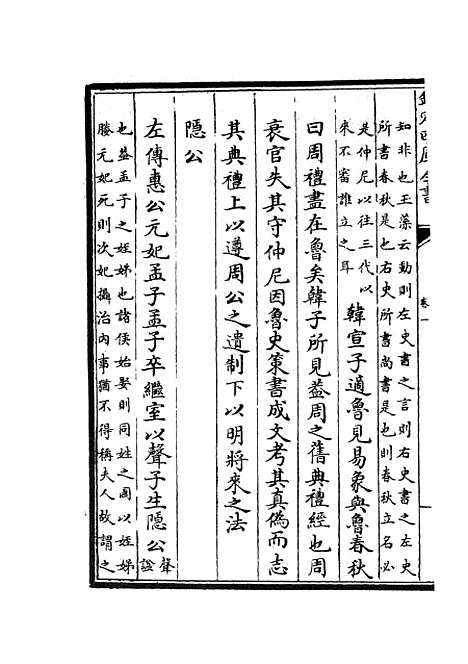 欽定四庫全書
卷一
知非也玉藻云動則左史書之言則右史書之左史
所書春秋是也右史所書尚書是也則春秋立名必
是仲尼以往三代以
來不審誰立之耳
韓宣子適魯見易象與魯春秋
曰周禮盡在魯矣韓子所見葢周之舊典禮經也周
衰官失其守仲尼因魯史策書成文考其真偽而志
其典禮上以遵周公之遺制下以明將來之法
隱公
左傳惠公元妃孟子孟子卒繼室以聲子生隱公
聲
諡
也葢孟子之姪娣也諸侯始娶則同姓之國以姪娣
媵元妃死則次妃攝治內事猶不得稱夫人故謂之